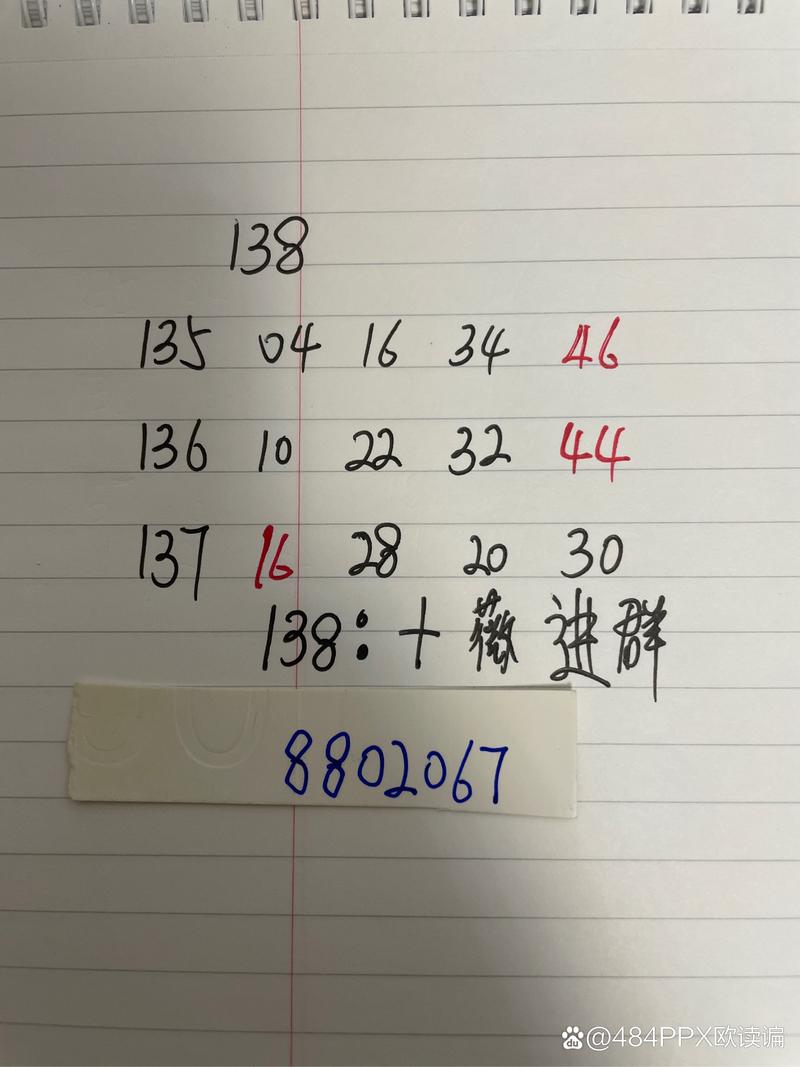 138
135 04 16 34 46
136 10 22 32 44
137 16 28 20 30
138:十薇进群
8802067
du @484PPX欧读谝